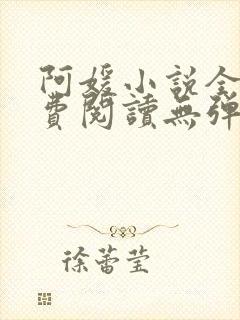 阿媛小說全
費閱讀無彈
徐蕾莹